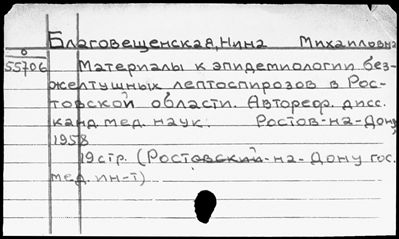 Благовещенская, Нина Михаиловна
55706
Материалы к эпидемиологии без-
желтушных лептоспирозов в Рос-
товской области. Автореф. дисс.
канд. мед. наук. Ростов-на-Дону,
1958
19 стр. (Ростовский-на-Дону гос.
мед. ин-т)